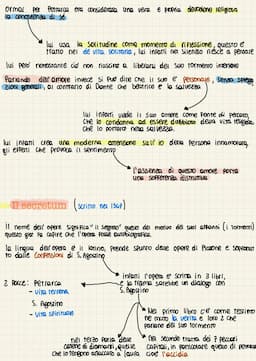 Ormai per Petrarca era considerata una vera e propria devozione religiosa
la conoscenza di sé
lui usa la solitudine come momento di riflessione, questo è
tratto nel de vita solitaria, lui infatti nel silenzio riesce a pensare
lui però nonostante ciò non riesce a liberarsi del suo tormento interiore
Parlando dell'amore invece si può dire che il suo è personale, senza spiega
zioni generali, al contrario di Dante che Beatrice è la salvezza
lui infatti vuole il suo amore come fonte di peccato,
che lo condanna ad essere d'abbaio della vita religiosa,
che lo portano nella salvezza.
lui infatti crea una moderna attenzione sull'io della persona innamorata,
gli effetti che provoca il sentimento
l'assenza di questo amore porta
una sofferenza distruttiva
Il secretum (scritto nel 1347)
Il nome dell'opera significa "il segreto" quello dei motivi dei suoi affanni (i tormenti)
questo già fa capire che l'opera parla autobiografia.
la lingua dell'opera è il latino, prende spunto dalle opere di Platone e soprattut
to dalle confessioni di S. Agostino
Infatti l'opera è scritta in 3 libri,
e la trama sarebbe un dialogo con
S. Agostino
2 Forze: Petrarca
- vita terrena
S. Agostino
- vita spirituale
Nel primo libro c'è come testimo
ne muto la verità e loro 2 che
parlano del suo tormento
Nel secondo tratta dei 7 peccati
capitali, in particolare quello di petrarca
cioè l'accidia
nel terzo parla delle
catene di diamanti, quelle
che lo tengono attaccato a laura